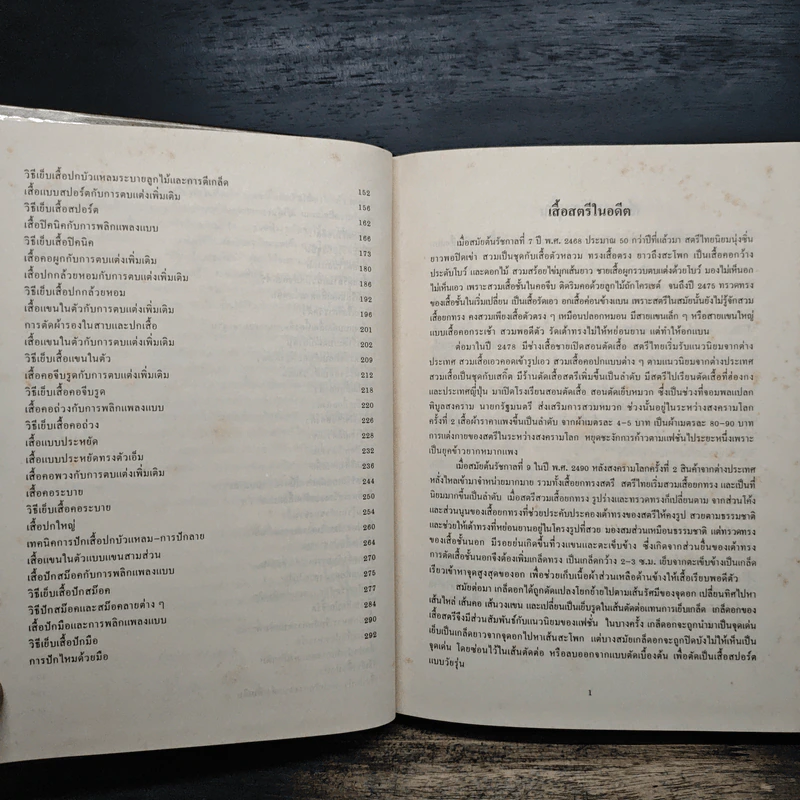 วิธีเย็บเสื้อปกบัวแหลมระบายลูกไม้และการตีเกล็ด
เสื้อแบบสปอร์ตกับการตบแต่งเพิ่มเติม 152
วิธีเย็บเสื้อสปอร์ต 156
เสื้อปิคนิคกับการพลิกแพลงแบบ 162
วิธีเย็บเสื้อปิคนิค 166
เสื้อคอผูกกับการตบแต่งเพิ่มเติม 173
เสื้อปกกล้วยหอมกับการตบแต่งเพิ่มเติม 180
วิธีเย็บเสื้อปกกล้วยหอม 186
เสื้อแขนในตัวกับการตบแต่งเพิ่มเติม 192
การตัดผ้ารองในสาบและปกเสื้อ 196
เสื้อแขนในตัวกับการตบแต่งเพิ่มเติม 201
วิธีเย็บเสื้อแขนในตัว 202
เสื้อคอจีบรูดกับการตบแต่งเพิ่มเติม 209
วิธีเย็บเสื้อคอจีบรูด 212
เสื้อคอถ่วงกับการพลิกแพลงแบบ 218
วิธีเย็บเสื้อคอถ่วง 220
เสื้อแบบประหยัด 226
เสื้อแบบประหยัดทรงตัวเอ็ม 228
เสื้อคอพวงกับการตบแต่งเพิ่มเติม 232
เสื้อคอระบาย 236
วิธีเย็บเสื้อคอระบาย 244
เสื้อปกใหญ่ 250
เทคนิคการปักเสื้อปกบัวแหลม-การปักลาย 254
เสื้อแขนในตัวแบบแขนสามส่วน 260
เสื้อปักสม็อคกับการพลิกแพลงแบบ 264
วิธีเย็บเสื้อปักสม็อค 270
วิธีปักสม็อคและสม็อคลายต่าง ๆ 275
เสื้อปักมือและการพลิกแพลงแบบ 277
วิธีเย็บเสื้อปักมือ 284
การปักไหมด้วยมือ 290
292
เสื้อสตรีในอดีต
เมื่อสมัยต้นรัชกาลที่ 7 ปี พ.ศ. 2468 ประมาณ 50 กว่าปีที่แล้วมา สตรีไทยนิยมนุ่งซิ่น
ยาวพอปิดเข่า สวมเป็นชุดกับเสื้อตัวหลวม ทรงเสื้อตรง ยาวถึงสะโพก เป็นเสื้อคอกว้าง
ประดับโบว์ และดอกไม้ สวมสร้อยไข่มุกเส้นยาว ชายเสื้อผูกรวบตบแต่งด้วยโบว์ มองไม่เห็นอก
ไม่เห็นเอว เพราะสวมเสื้อชั้นในคอจีบ ติดริมคอด้วยลูกไม้ถักโครเชต์ จนถึงปี 2475 ทรวดทรง
ของเสื้อชั้นในเริ่มเปลี่ยน เป็นเสื้อรัดเอว อกเสื้อค่อนข้างแบน เพราะสตรีในสมัยนั้นยังไม่รู้จักสวม
เสื้อยกทรง คงสวมเพียงเสื้อตัวตรง ๆ เหมือนปลอกหมอน มีสายแขนเล็ก ๆ หรือสายแขนใหญ่
แบบเสื้อคอกระเช้า สวมพอดีตัว รัดเต้าทรงไม่ให้หย่อนยาน แต่ทำให้อกแบน
ต่อมาในปี 2478 มีช่างเสื้อชายเปิดสอนตัดเสื้อ สตรีไทยเริ่มรับแนวนิยมจากต่าง
ประเทศ สวมเสื้อเอวคอดเข้ารูปเอว สวมเสื้อคอปกแบบต่าง ๆ ตามแนวนิยมจากต่างประเทศ
สวมเสื้อเป็นชุดกับเสกิ๊ต มีร้านตัดเสื้อสตรีเพิ่มขึ้นเป็นลำดับ มีสตรีไปเรียนตัดเสื้อที่ฮ่องกง
และประเทศญี่ปุ่น มาเปิดโรงเรียนสอนตัดเสื้อ สอนตัดเย็บหมวก ซึ่งเป็นช่วงที่จอมพลแปลก
พิบูลสงคราม นายกรัฐมนตรี ส่งเสริมการสวมหมวก ช่วงนั้นอยู่ในระหว่างสงครามโลก
ครั้งที่ 2 เสื้อผ้าราคาแพงขึ้นเป็นลำดับ จากผ้าเมตรละ 4-5 บาท เป็นผ้าเมตรละ 80-90 บาท
การแต่งกายของสตรีในระหว่างสงครามโลก หยุดชะงักการก้าวตามแฟชั่นไประยะหนึ่งเพราะ
เป็นยุคข้าวยากหมากแพง
เมื่อสมัยต้นรัชกาลที่ 9 ในปี พ.ศ. 2490 หลังสงครามโลกครั้งที่ 2 สินค้าจากต่างประเทศ
หลั่งไหลเข้ามาจำหน่ายมากมาย รวมทั้งเสื้อยกทรงสตรี สตรีไทยเริ่มสวมเสื้อยกทรง และเป็นที่
นิยมมากขึ้นเป็นลำดับ เมื่อสตรีสวมเสื้อยกทรง รูปร่างและทรวดทรงก็เปลี่ยนตาม จากส่วนโค้ง
และส่วนนูนของเสื้อยกทรงที่ช่วยประคับประคองเต้าทรงของสตรีให้คงรูป สวยตามธรรมชาติ
และช่วยให้เต้าทรงที่หย่อนยานอยู่ในโครงรูปที่สวย มองสมส่วนเหมือนธรรมชาติ แต่ทรวดทรง
ของเสื้อชั้นนอก มีรอยย่นเกิดขึ้นที่วงแขนและตะเข็บข้าง ซึ่งเกิดจากส่วนยื่นของเต้าทรง
การตัดเสื้อชั้นนอกจึงต้องเพิ่มเกล็ดทรง เป็นเกล็ดกว้าง 2-3 ซ.ม. เย็บจากตะเข็บข้างเป็นเกล็ด
เรียวเข้าหาจุดสูงสุดของอก เพื่อช่วยเก็บเนื้อผ้าส่วนเหลือด้านข้างให้เสื้อเรียบพอดีตัว
สมัยต่อมา เกล็ดอกได้ถูกดัดแปลงโยกย้ายไปตามเส้นรัศมีของจุดอก เปลี่ยนทิศไปหา
เส้นไหล่ เส้นคอ เส้นวงแขน และเปลี่ยนเป็นเย็บรูดในเส้นตัดต่อแทนการเย็บเกล็ด เกล็ดอกของ
เสื้อสตรีจึงมีส่วนสัมพันธ์กับแนวนิยมของแฟชั่น ในบางครั้ง เกล็ดอกจะถูกนำมาเป็นจุดเด่น
เย็บเป็นเกล็ดยาวจากจุดอกไปหาเส้นสะโพก แต่บางสมัยเกล็ดอกจะถูกปิดบังไม่ให้เห็นเป็น
จุดเด่น โดยซ่อนไว้ในเส้นตัดต่อ หรือลบออกจากแบบตัดเบื้องต้น เพื่อตัดเป็นเสื้อสปอร์ต
แบบวัยรุ่น
1